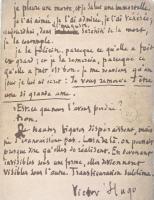 je pleure une morte, et je salue une immortelle.
je l'ai aimée, je l'ai admirée, je l'ai vénérée;
aujourd'hui, dans l'auguste sérénité de la mort,
je la contemple.
je la félicite, parce que ce qu'elle a fait
est grand; et je la remercie, parce que ce
qu'elle a fait est bon. je me souviens qu'un
jour je lui ai écrit: Je vous remercie d'être
une si grande âme.
Est-ce que nous l'avons perdue?
Non.
Ces hautes figures disparaissent, mais
ne s'évanouissent pas. Loin de là; on pourrait
presque dire qu'elles se réalisent. En devenant
invisibles sous une forme, elles deviennent
visibles sous l'autre. Transfiguration sublime.
Victor Hugo